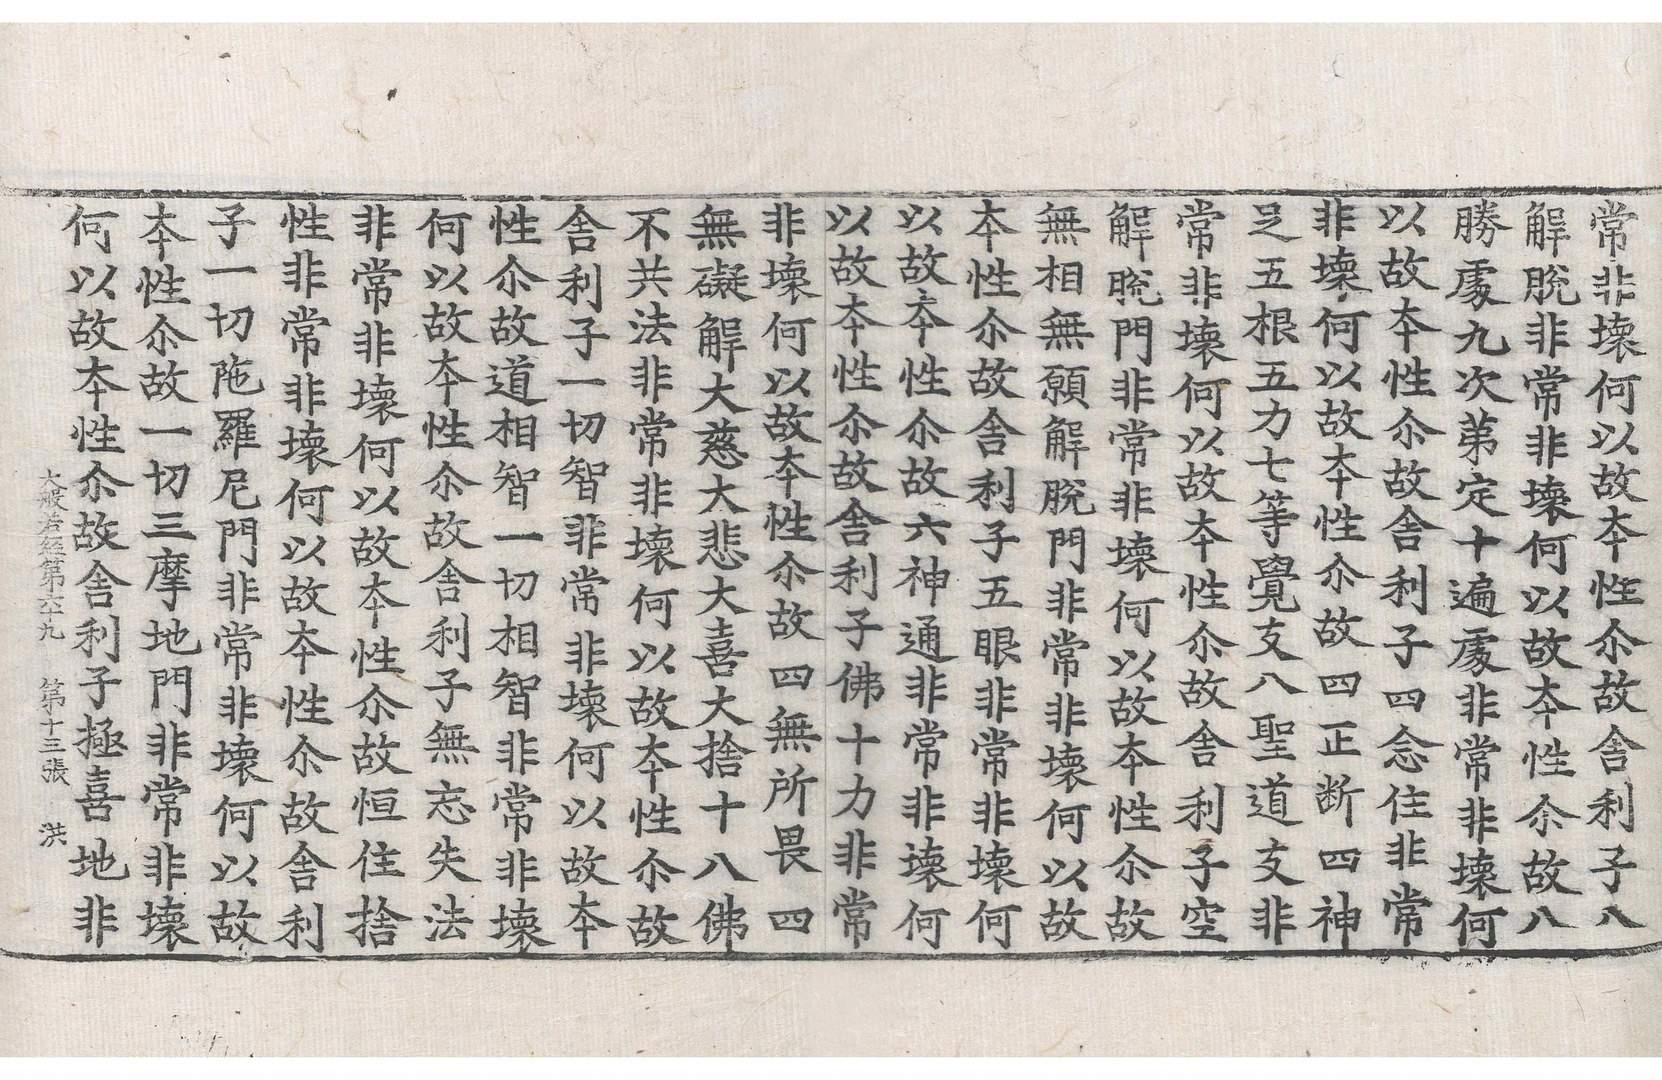 常非壞何以故本性尒故舍利子八
解脫非常非壞何以故本性尒故八
勝處九次第定十遍處非常非壞何
以故本性尒故舍利子四念住非常
非壞何以故本性尒故四正断四神
足五根五力七等覺支八聖道支非
常非壞何以故本性尒故舍利子空
解脫門非常非壞何以故本性尒故
無相無願解脫門非常非壞何以故
本性尒故舍利子五眼非常非壞何
以故本性尒故六神通非常非壞何
以故本性尒故舍利子佛十力非常
非壞何以故本性尒故四無所畏四
無礙解大慈大悲大喜大捨十八佛
不共法非常非壞何以故本性尒故
舍利子一切智非常非壞何以故本
性尒故道相智一切相智非常非壞
何以故本性尒故舍利子無忘失法
非常非壞何以故本性尒故恒住捨
性非常非壞何以故本性尒故舍利
子一切陁羅尼門非常非壞何以故
本性尒故一切三摩地門非常非壞
何以故本性尒故舍利子極喜地非
大般若經第六十九 第十三張 洪